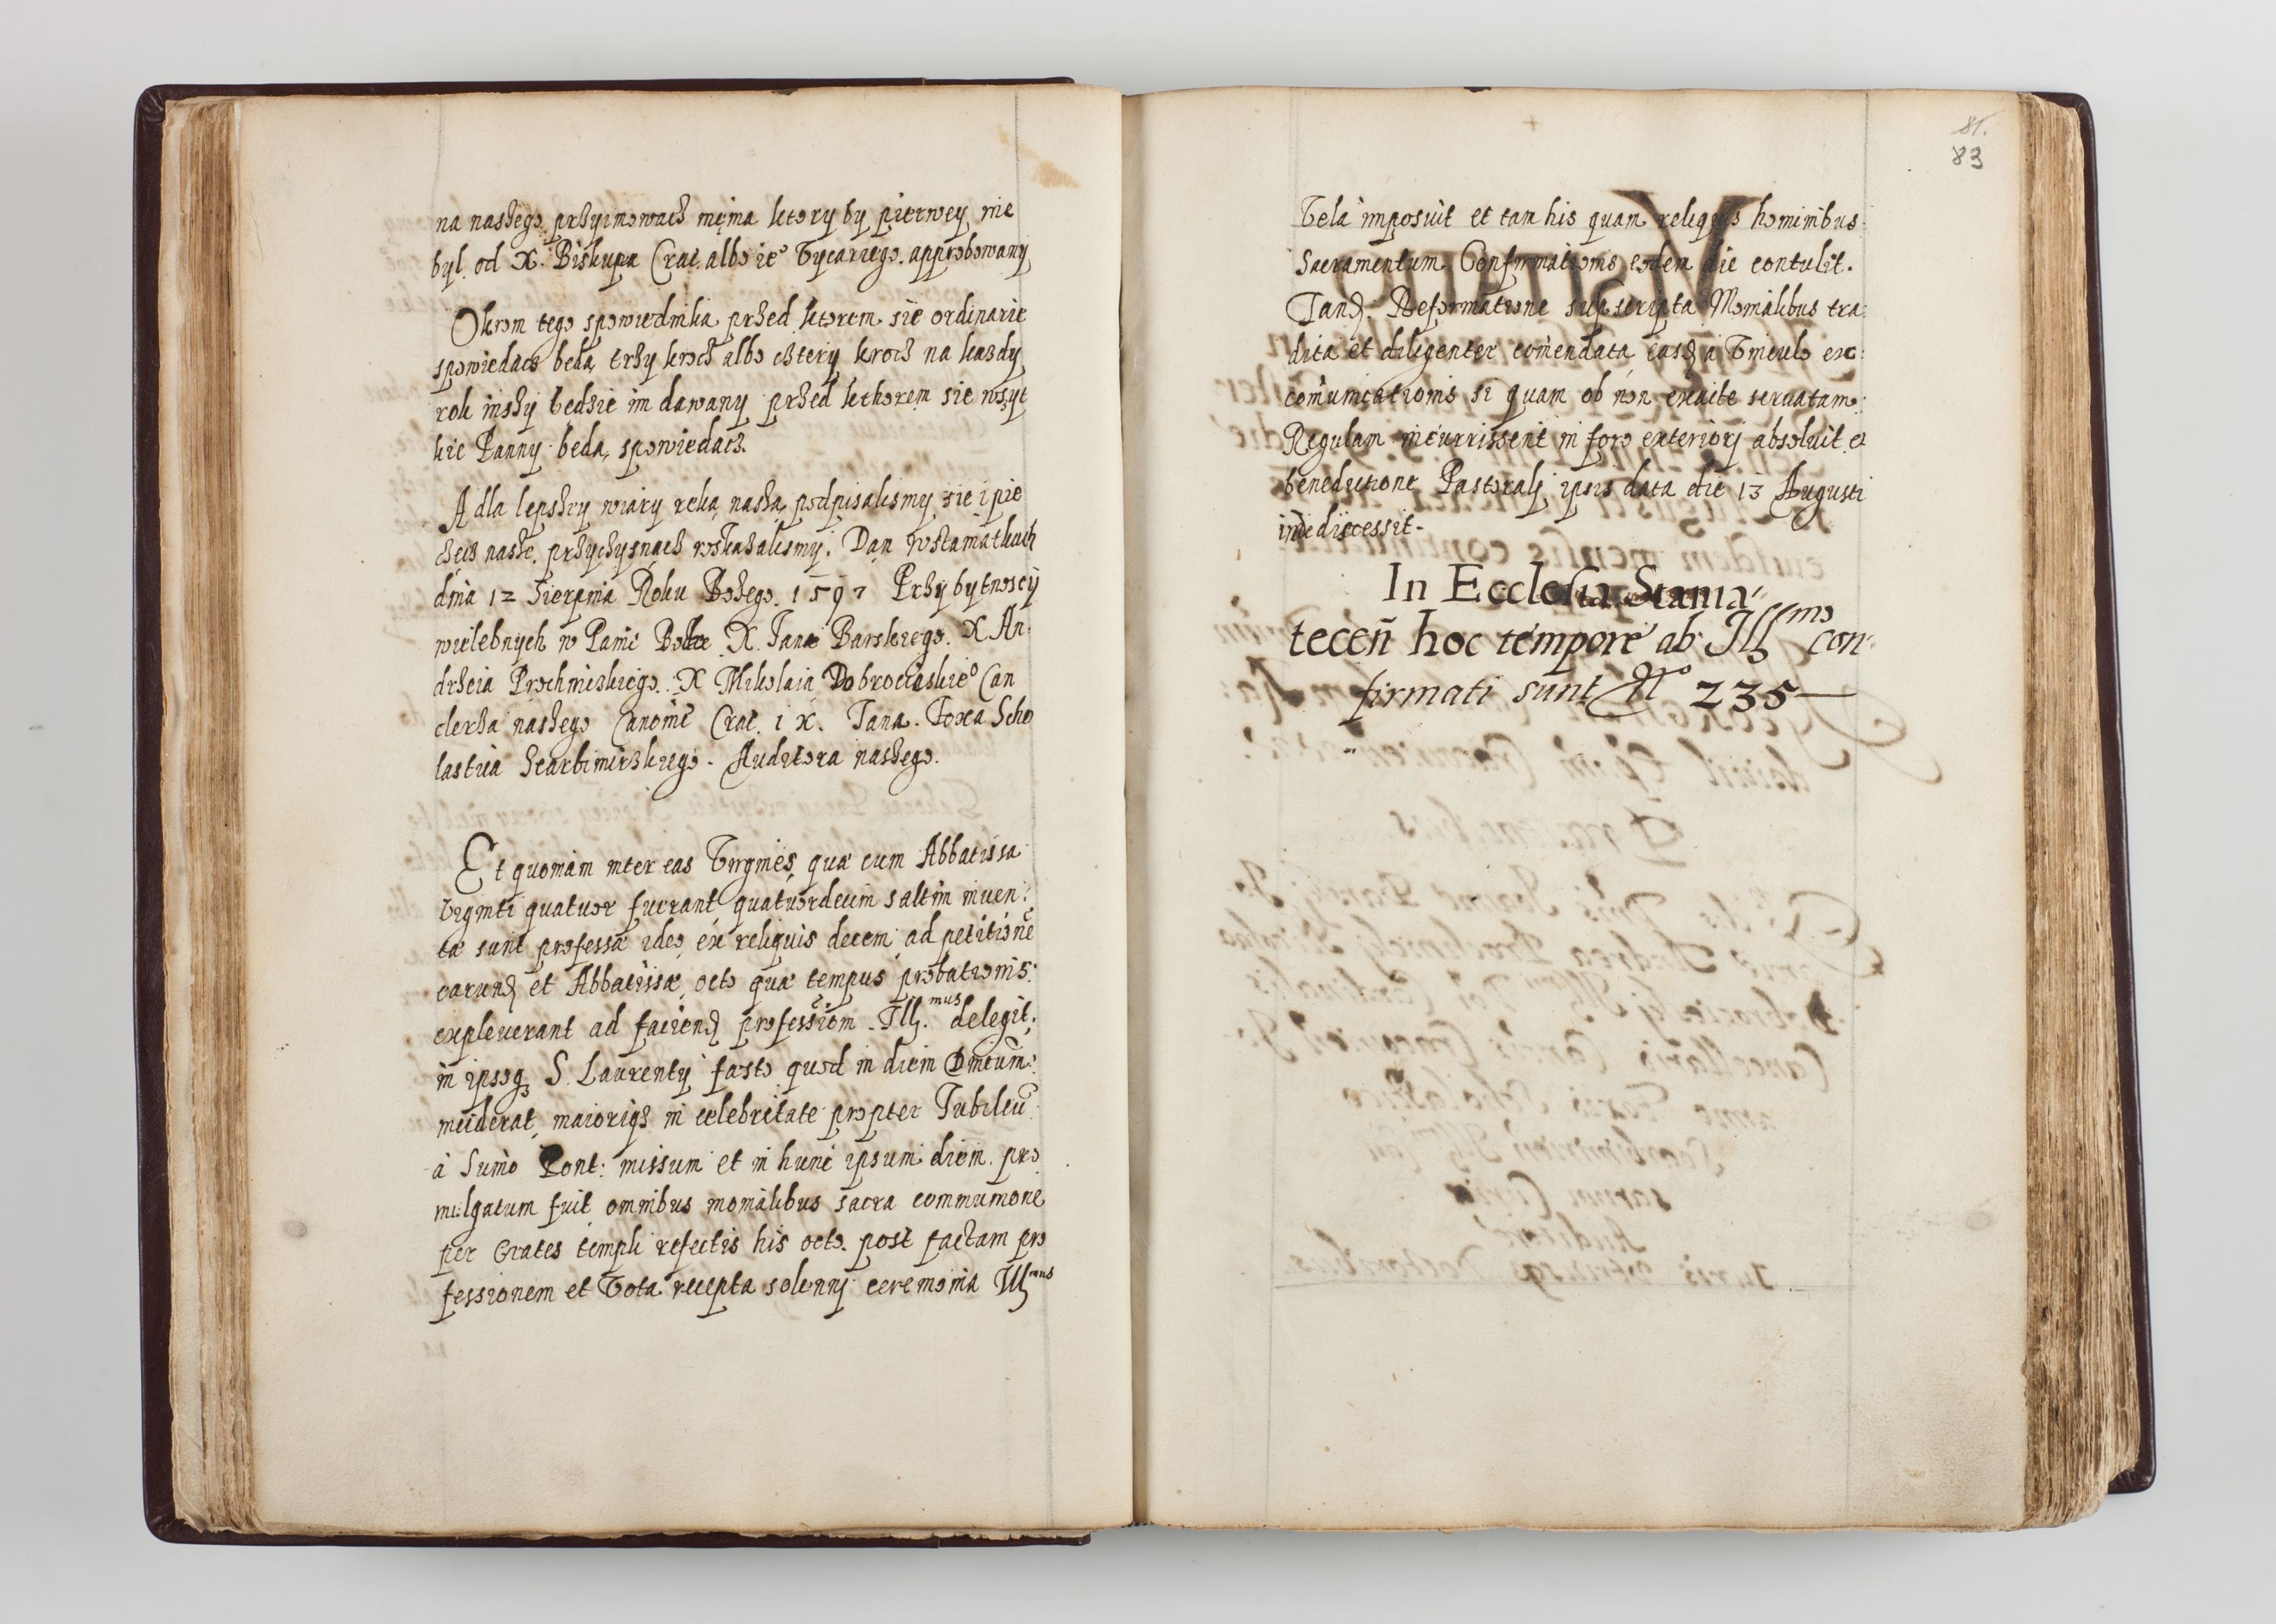 na naszego przyimowacz męma ktory by pierwey nie
był od X. Biskupa Crac. albo ie° Vycariego. approbowany
Okrom tego spowiednika przed ktorem sie ordinarie
spowiedacz beda, trzy krocz albo cztery krocz na kazdy
rok inszy bedzie im dawany przed kthorem sie wszyt
kie Panny beda, spowiedacz.
A dla lepszey wiary reką naszą podpisalismy sie i pie
czecz nasze. przyczysnacz roskazalismy. Dan w Staniątkach
dnia 12 Sierpnia Roku Bozego. 1597 Przy bytnoscy
wielebnych w Panie Bodze X. Jana Barskiego. X An
drzeia Prochnickiego. X Mikolaia Dobrocieskie° Can
clerza naszego Canonic Crac. i X. Jana. Foxa Scho
lastica Scarbimirskiego. Auditora naszego.
Et quoniam inter eas Virgines, qua cum Abbatissa
viginti quatuor fuerant quatuordecim saltim inuen:
ta sunt professa ideo ex reliquis decem, ad petitionē
earund et Abbatissæ, octo qua tempus probationis:
expleuerant ad faciend professiom Ill.mus delegit:
in ipsoq3 S. Laurentij festo quod in diem Dnicum:
inciderat, maioriq3 in celebritate propter Iubileū
à Sumo Pont: missum et in hunc ipsum diem. pro
mulgatum fuit omnibus monialibus sacra communione
per Crates templi refectis his octo. post factam pro
fessionem et Vota recepta solenni ceremonia Illmus
81.
83
Vela imposuit et tam his quam reliquis hominibus
Sacramentum Confirmationis eodem die contulit.
Tand. Reformatione supscripta Monialibus tra
dita et diligenter comendata easq à Vinculo ex:
comunicationis si quam ob non exacte seruatam:
Regulam incurrissent in foro exteriorj absoluit et
benedictione Pastoralj ipsis data die 13 Augusti
inde discessit.
In Ecclesia Stania
teceñ hoc tempore ab Illmo con
firmati sunt N° 235